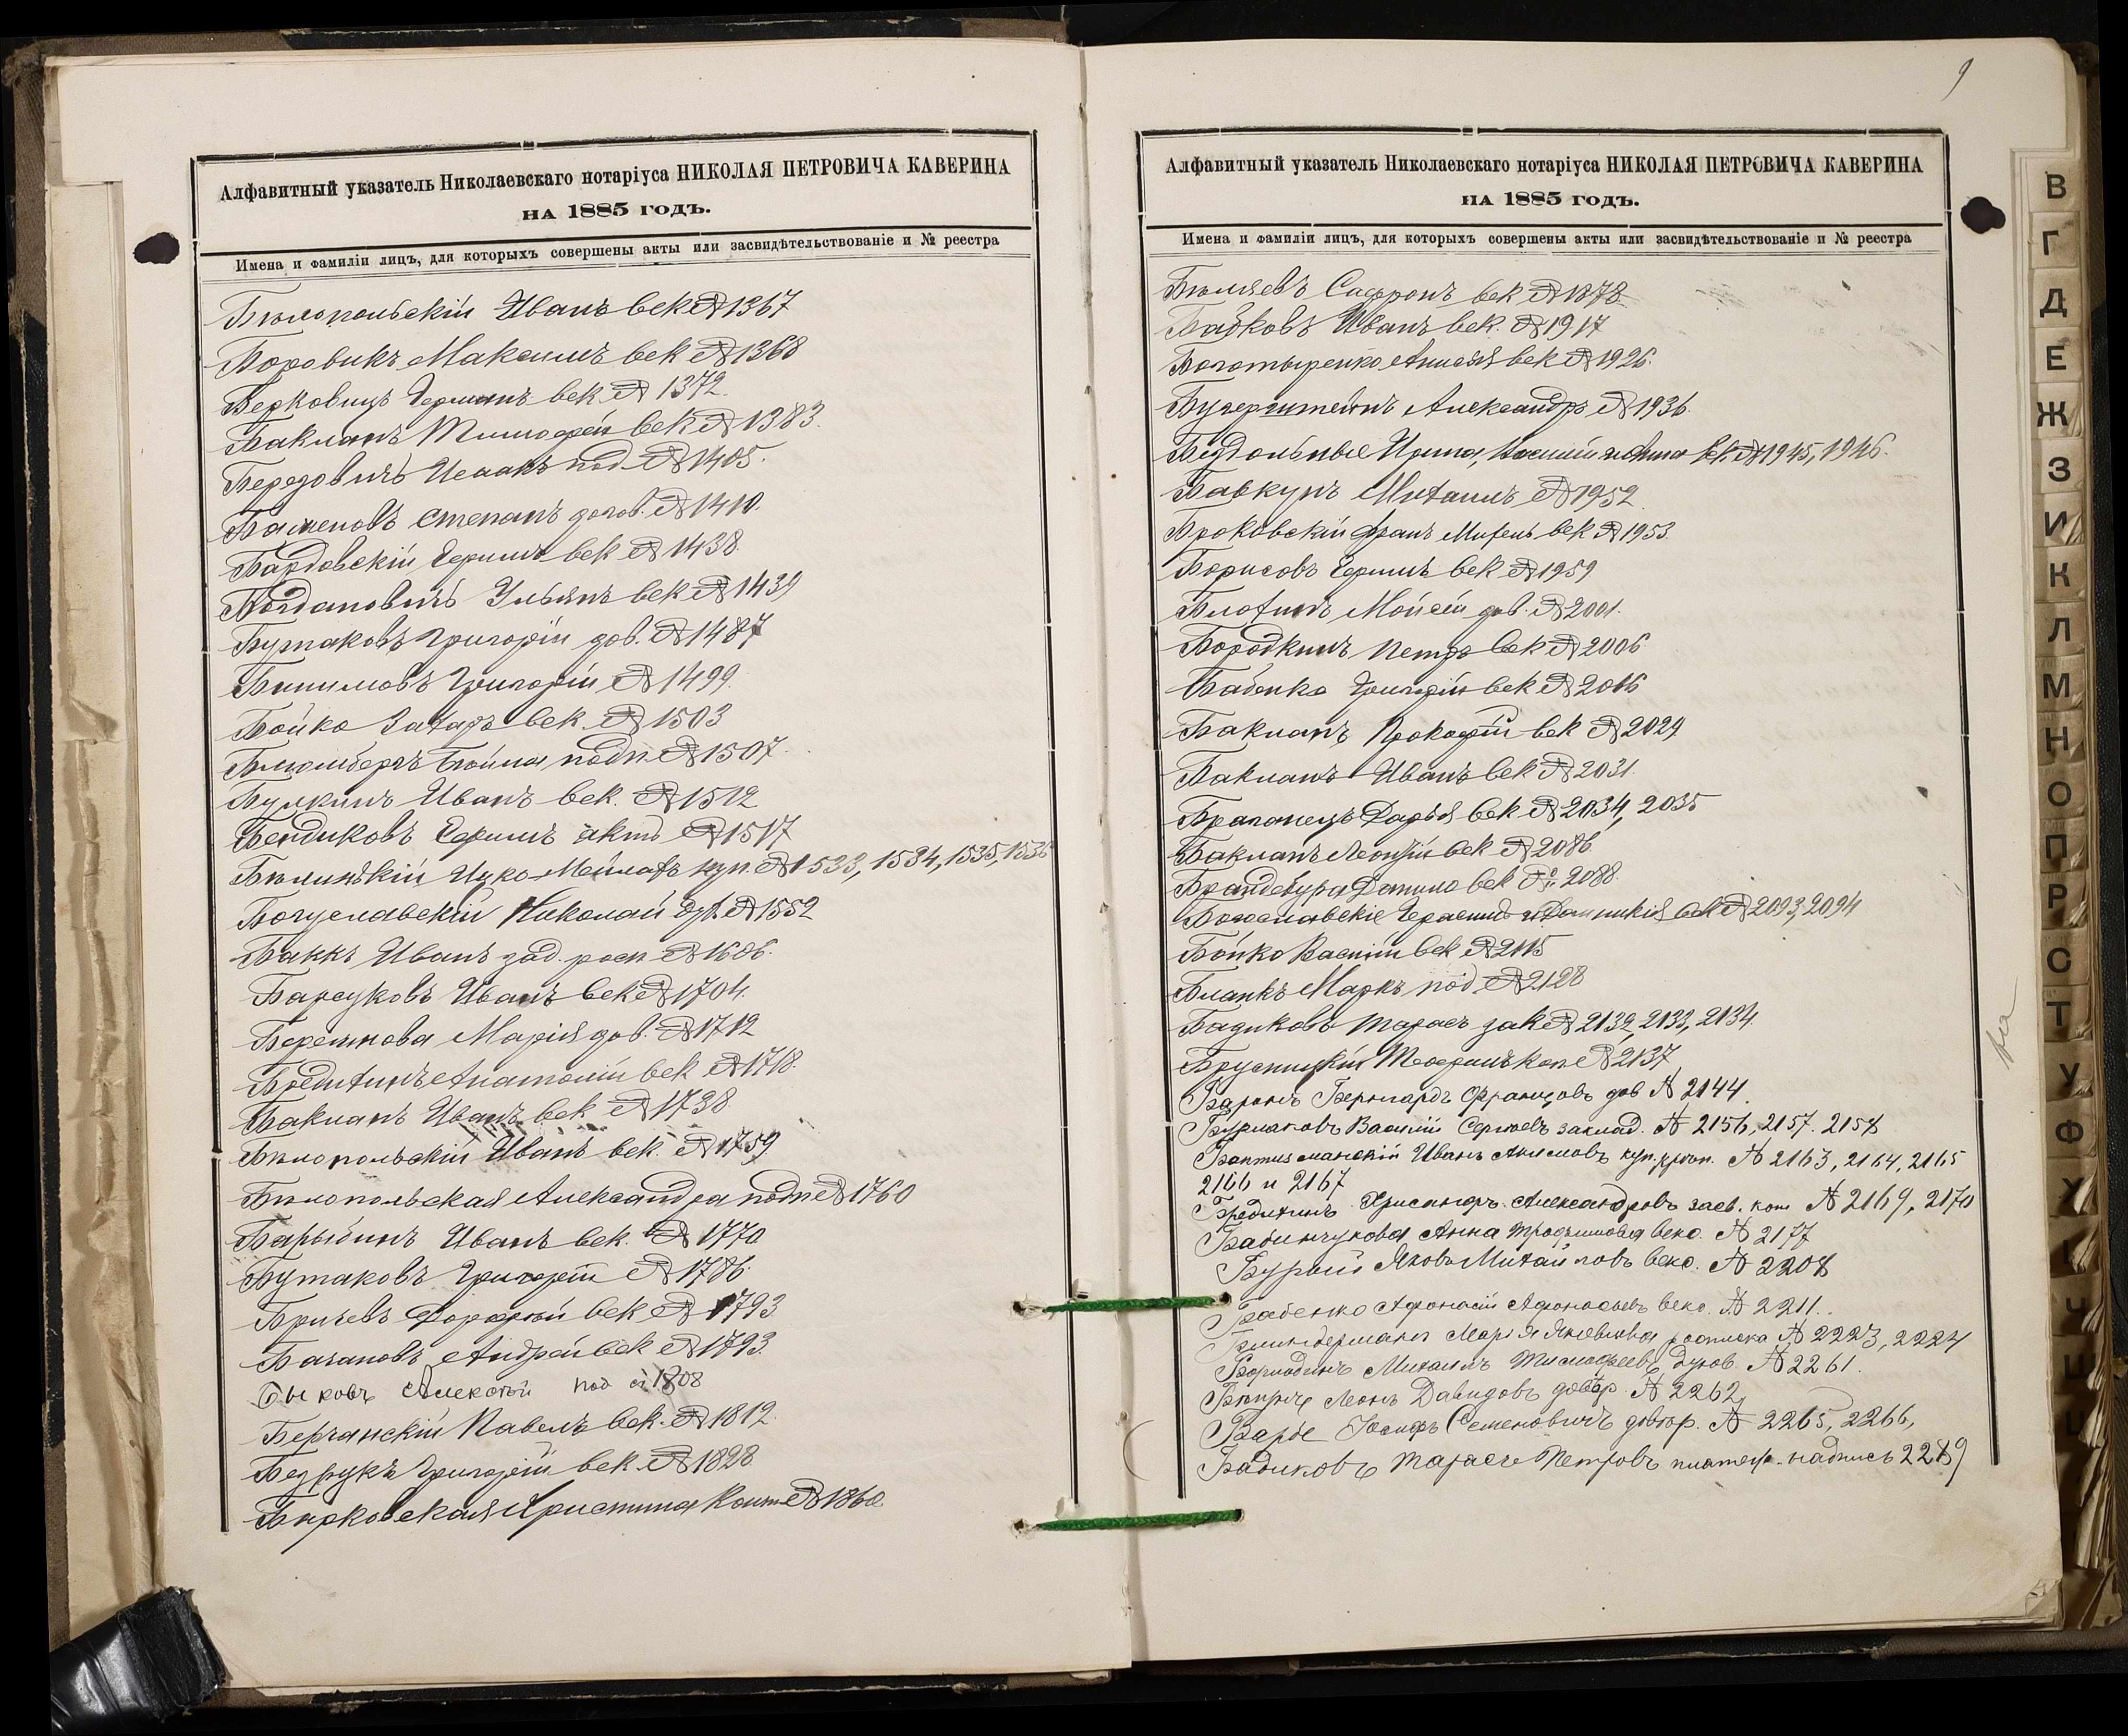 Алфавитный указатель Николаевскаго нотаріуса НИКОЛАЯ ПЕТРОВИЧА КАВЕРИНА
НА 1885 ГОДЪ.
Имена и фамиліи лицъ, для которыхъ совершены акты или засвидѣтельствованіе и № реестра
Бѣлопольскій Иванъ век № 1367
Боровикъ Максимъ век № 1368
Берковичъ Германъ век № 1372
Бакланъ Тимофей век № 1383
Березовичъ Исаакъ под № 1405
Баженовъ Степанъ догов. № 1410
Бардовскій Ефимъ век № 1438
Богдановичъ Ульянъ век № 1439
Бутаковъ Григорій дов. № 1487
Григорій № 1499
Бойко Захаръ век № 1503
Блюмбергъ подп № 1507
Иванъ век. № 1512
Бендиковъ Ефимъ актъ № 1517
Бѣлинскій Ицко-Мейлахъ куп. № 1533, 1534, 1535, 1536
Богуславскій Николай дух № 1552
Баккъ Иванъ зад. росп № 1686
Барсуковъ Иванъ век № 1704
Марія дов. № 1712
Бредихинъ Анатолій век № 1718
Бакланъ Иванъ век № 1738
Бѣлопольскій Иванъ век. № 1759
Бѣлопольская Александра подп № 1760
Барыбинъ Иванъ век. № 1770
Бутаковъ Григорій № 1786
век № 1793
Бачановъ Андрей век № 1793
Быковъ Алексѣй под № 1808
Берчанскій Павелъ век. № 1812
Безрукъ Григорій век № 1828
Бирковская Христина Конт № 1860
9
Алфавитный указатель Николаевскаго нотаріуса НИКОЛАЯ ПЕТРОВИЧА КАВЕРИНА
НА 1885 ГОДЪ.
Имена и фамиліи лицъ, для которыхъ совершены акты или засвидѣтельствованіе и № реестра
Бѣляевъ Сафронъ век № 1878
Бабковъ Иванъ век. № 1917
Боготыренко век № 1926
Александръ № 1936
Бездольные Ирина, Василій и Анна век № 1945, 1946
Бавкунъ Михаилъ № 1952
Броковскій век № 1953
Борисовъ Ефимъ век № 1959
Блохинъ Мойсей дов. № 2001
Бородкинъ Петръ век № 2006
Бабенко Григорій век № 2016
Бакланъ Прокофій век № 2029
Бакланъ Иванъ век № 2031
Браганецъ Дарья век № 2034, 2035
Бакланъ Леонтій век № 2086
Брандебура Данило век № 2088
Герасимъ и век № 2093, 2094
Бойко Василій век № 2115
Бланкъ Маркъ под № 2128
Бадиковъ Тарасъ зак № 2132, 2133, 2134
Брусницкій Теофилъ Конт № 2137
Баронъ Бернгардъ Францовъ дов № 2144
Бурлаковъ Василій Сергѣевъ заклад. № 2156, 2157. 2158
Иванъ Акимовъ куп. крѣп. № 2163, 2164, 2165
2166 и 2167
Бредихинъ Хрисанфъ Александровъ засв. коп № 2169, 2170
Бабинчукова Анна Трофимовна векс. № 2177
Бурый Яковъ Михайловъ векс. № 2208
Бабенко Афонасій Афонасьевъ векс. № 2211.
Марія Яковлевна росписка № 2223, 2224
Михаилъ Тимофеевъ духов. № 2261.
Леонъ Давидовъ довѣр. № 2262
Барбе Іосифъ Семеновичъ довѣр. № 2265, 2266,
Бадиковъ Тарасъ Петровъ платеж. надпись 2289
В
Г
Д
Е
Ж
З
И
К
Л
М
Н
О
П
Р
С
Т
У
Ф
Х
Ч
Ш